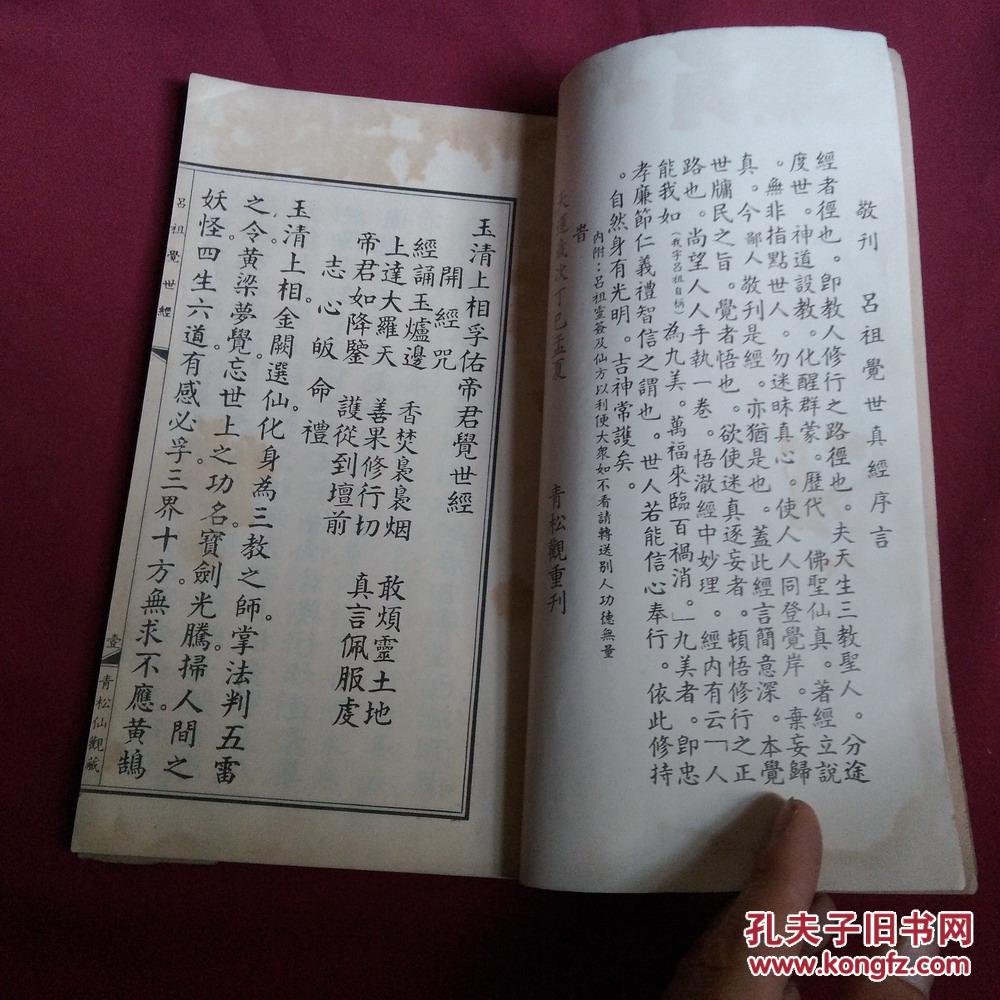 敬刊　呂祖覺世真經序言
經者徑也。即教人修行之路徑也。夫天生三教聖人。分途
度世。神道設教。化醒群蒙。歷代　佛聖仙真。著經立說
。無非指點世人。勿迷昧真心。使人人同登覺岸。棄妄歸
真。今鄙人敬刊是經。亦猶是也。蓋此經言簡意深。本覺
世牖民之旨。覺者悟也。欲使迷真逐妄者。頓悟修行之正
路也。尚望人人手執一卷。悟澈經中妙理。經內有云「人
能我如（我字呂祖自稱）為九美。萬福來臨百禍消。」九美者。即忠
孝廉節仁義禮智信之謂也。世人若能信心奉行。依此修持
。自然身有光明。吉神常護矣。
內附：呂祖靈簽及仙方以利便大眾如不看請轉送別人功德無量
旹
歲次丁巳孟夏　青松觀重刊
玉清上相孚佑帝君覺世經
開經咒
經誦玉爐邊　香焚裊裊烟　敢煩靈土地
上達大羅天　善果修行切　真言佩服虔
帝君如降鑒　護從到壇前
志心皈命禮
玉清上相金闕選仙。化身為三教之師。掌法判五雷
之令。黃梁夢覺。忘世上之功名。寶劍光騰。掃人間之
妖怪。四生六道。有感必孚。三界十方。無求不應。黃鵠
呂祖覺世經
壹
青松仙觀藏
孔夫子旧书网
www.kongfz.com